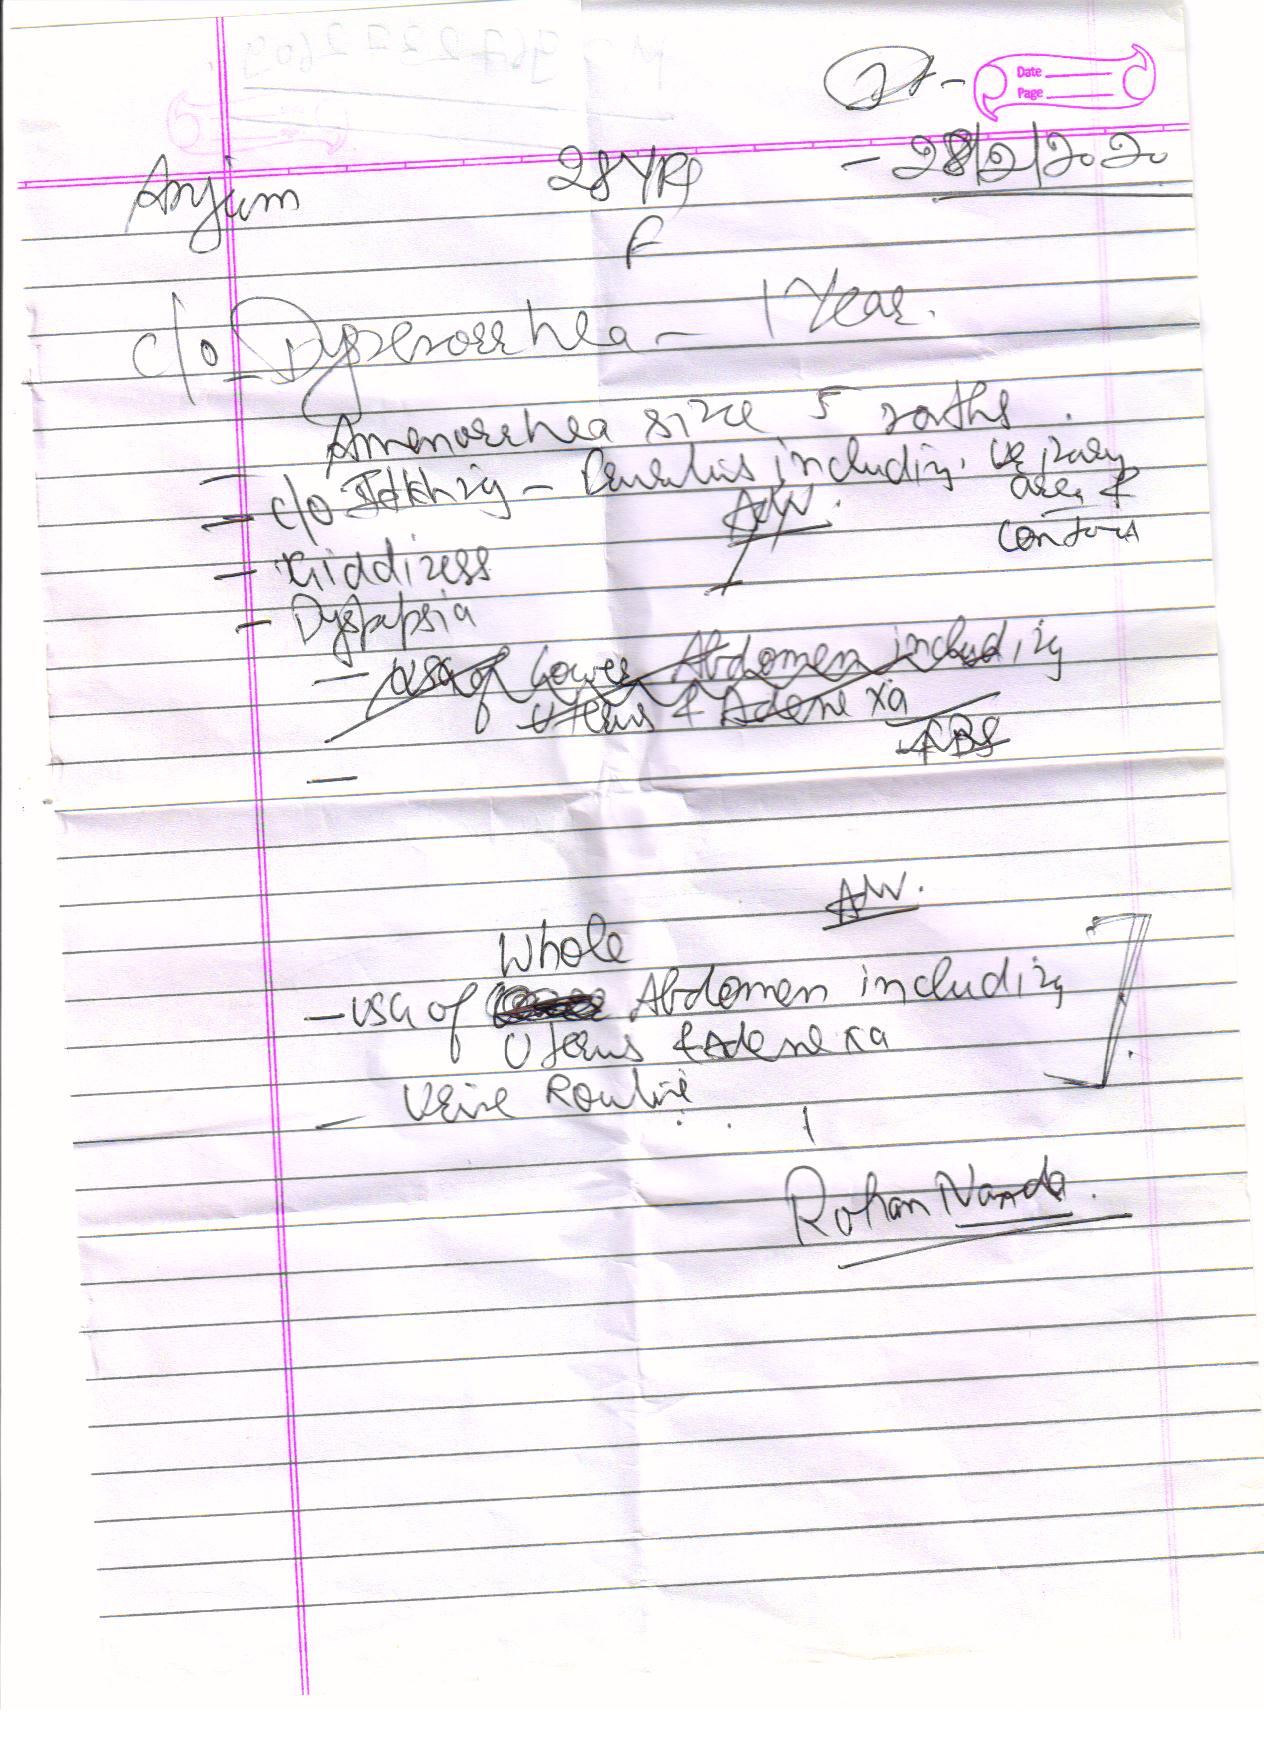 Dt -
Date
Page
Anjum 28 YRS - 28/2/2020
F
c/o Dysmenorrhea - 1 Year.
- Amenorrhea since 5 months.
- c/o Itching - including urinary
area &
Adv.
- Giddiness
- Dyspepsia
- USG of Lower Abdomen including
Uterus & Adenexa
Adv.
Whole
- USG of Abdomen including
Uterus & Adenexa
- Urine Routine
Rohan Nanda.